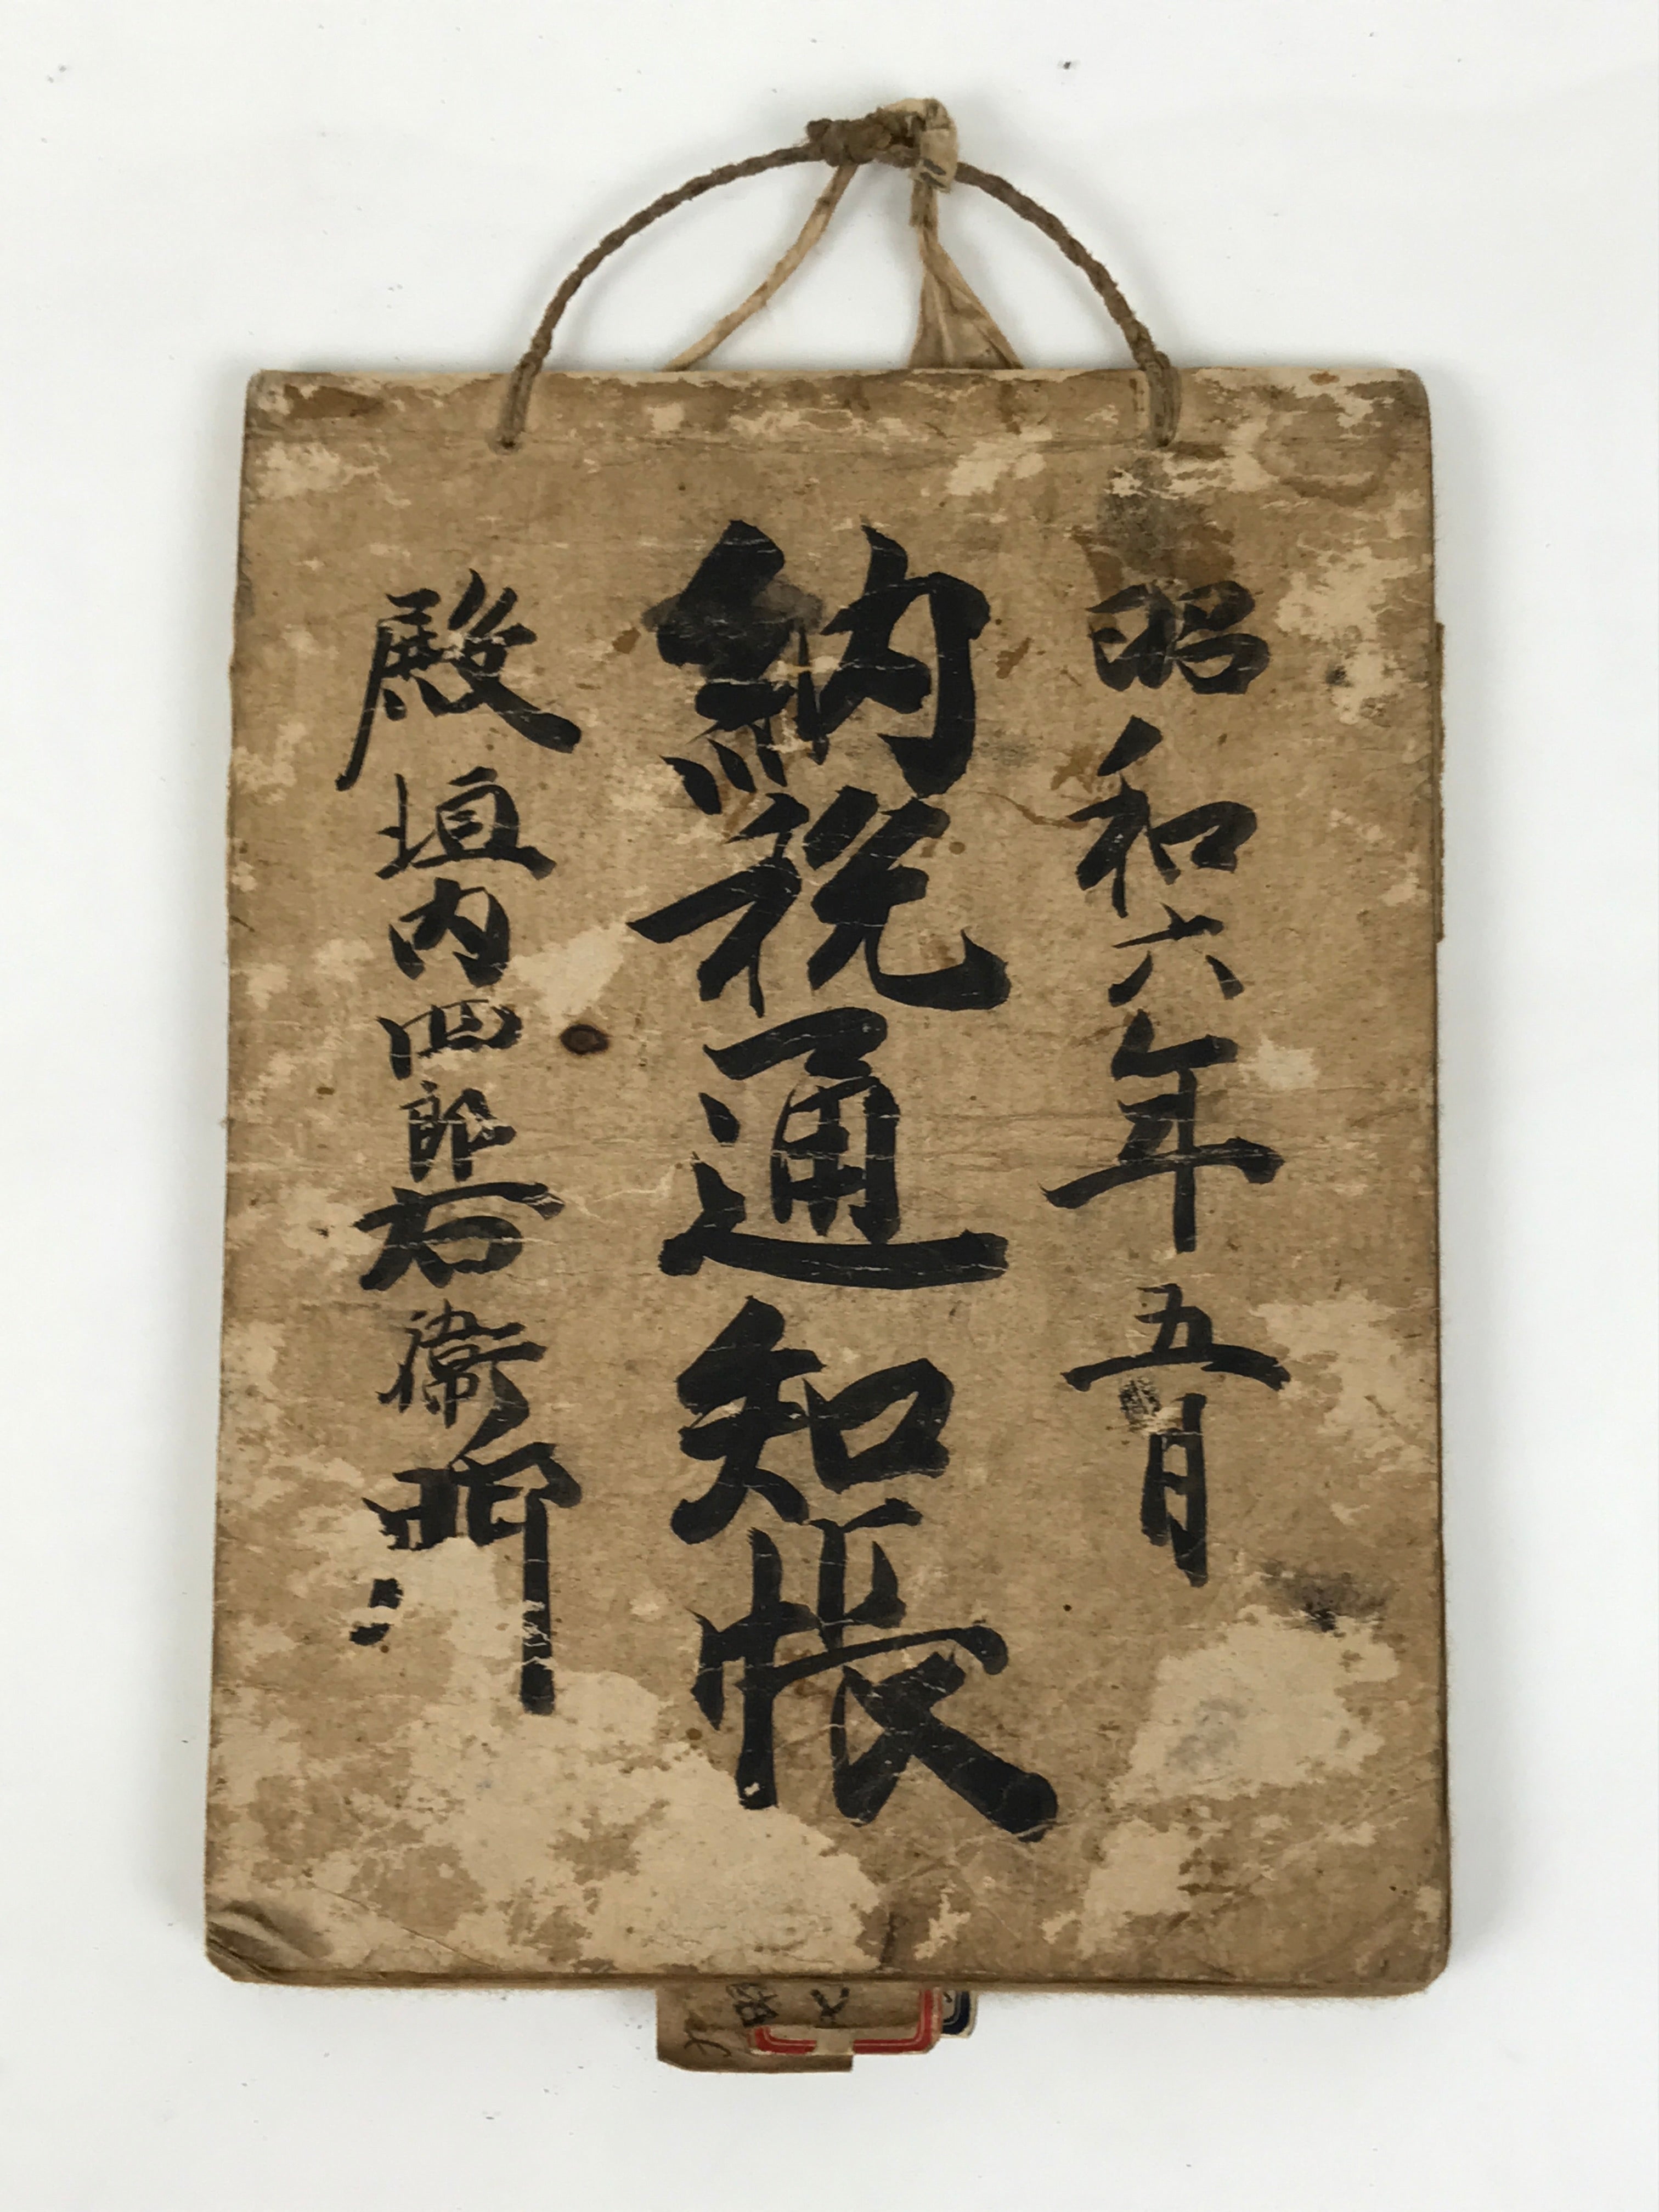 昭和六年五月
納税通知帳
殿垣内四郎右衛門